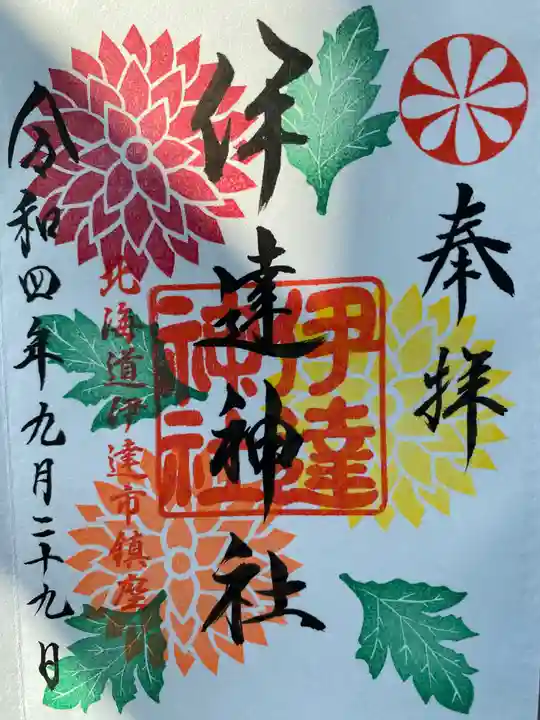 奉拝
伊達神社
伊達
神社
北海道伊達市鎮座
令和四年九月二十九日